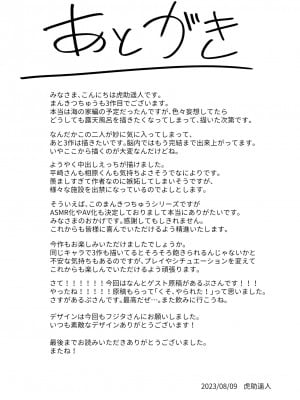 あとがき
みなさま、こんにちは虎助遥人です。
まんきつちゅうも3作目でございます。
本当は海の家編の予定だったんですが、色々妄想してたら
どうしても露天風呂を描きたくなってしまって、描いた次第です。
なんだかこの二人が妙に気に入ってしまって、
あと3作は描きたいです。脳内ではもう完結まで出来上がってます。
いやここから描くのが大変なんだけどね。
ようやく中出しえっちが描けました。
平崎さんも相原くんも気持ちよさそうでなによりです。
羨ましすぎて作者なのに嫉妬してしまいそうですが、
様々な施設を出禁になっているのでよしとします。
そういえば、このまんきつちゅうシリーズですが
ASMR化やAV化も決定しておりまして本当にありがたいです。
みなさまのおかげです。感謝してもしきれません。
これからも皆様に喜んでいただけるよう精進いたします。
今作もお楽しみいただけましたでしょうか。
同じキャラで3作も描いてるとそろそろ飽きられるんじゃないかと
不安な気持ちもあるのですが、プレイやシチュエーションを変えて
これからも楽しんでいただけるよう頑張ります。
さて！！！！！！今回はなんとゲスト原稿があるぷさんです！！！
やったね！！！！！原稿もらって「くそ、やられた！」って思いました。
さすがあるぷさんです。最高だぜ…。また飲みに行こうね。
デザインは今回もフジタさんにお願いしました。
いつも素敵なデザインありがとうございます！
最後までお読みいただきありがとうございました。
またね！
2023/08/09 虎助遥人